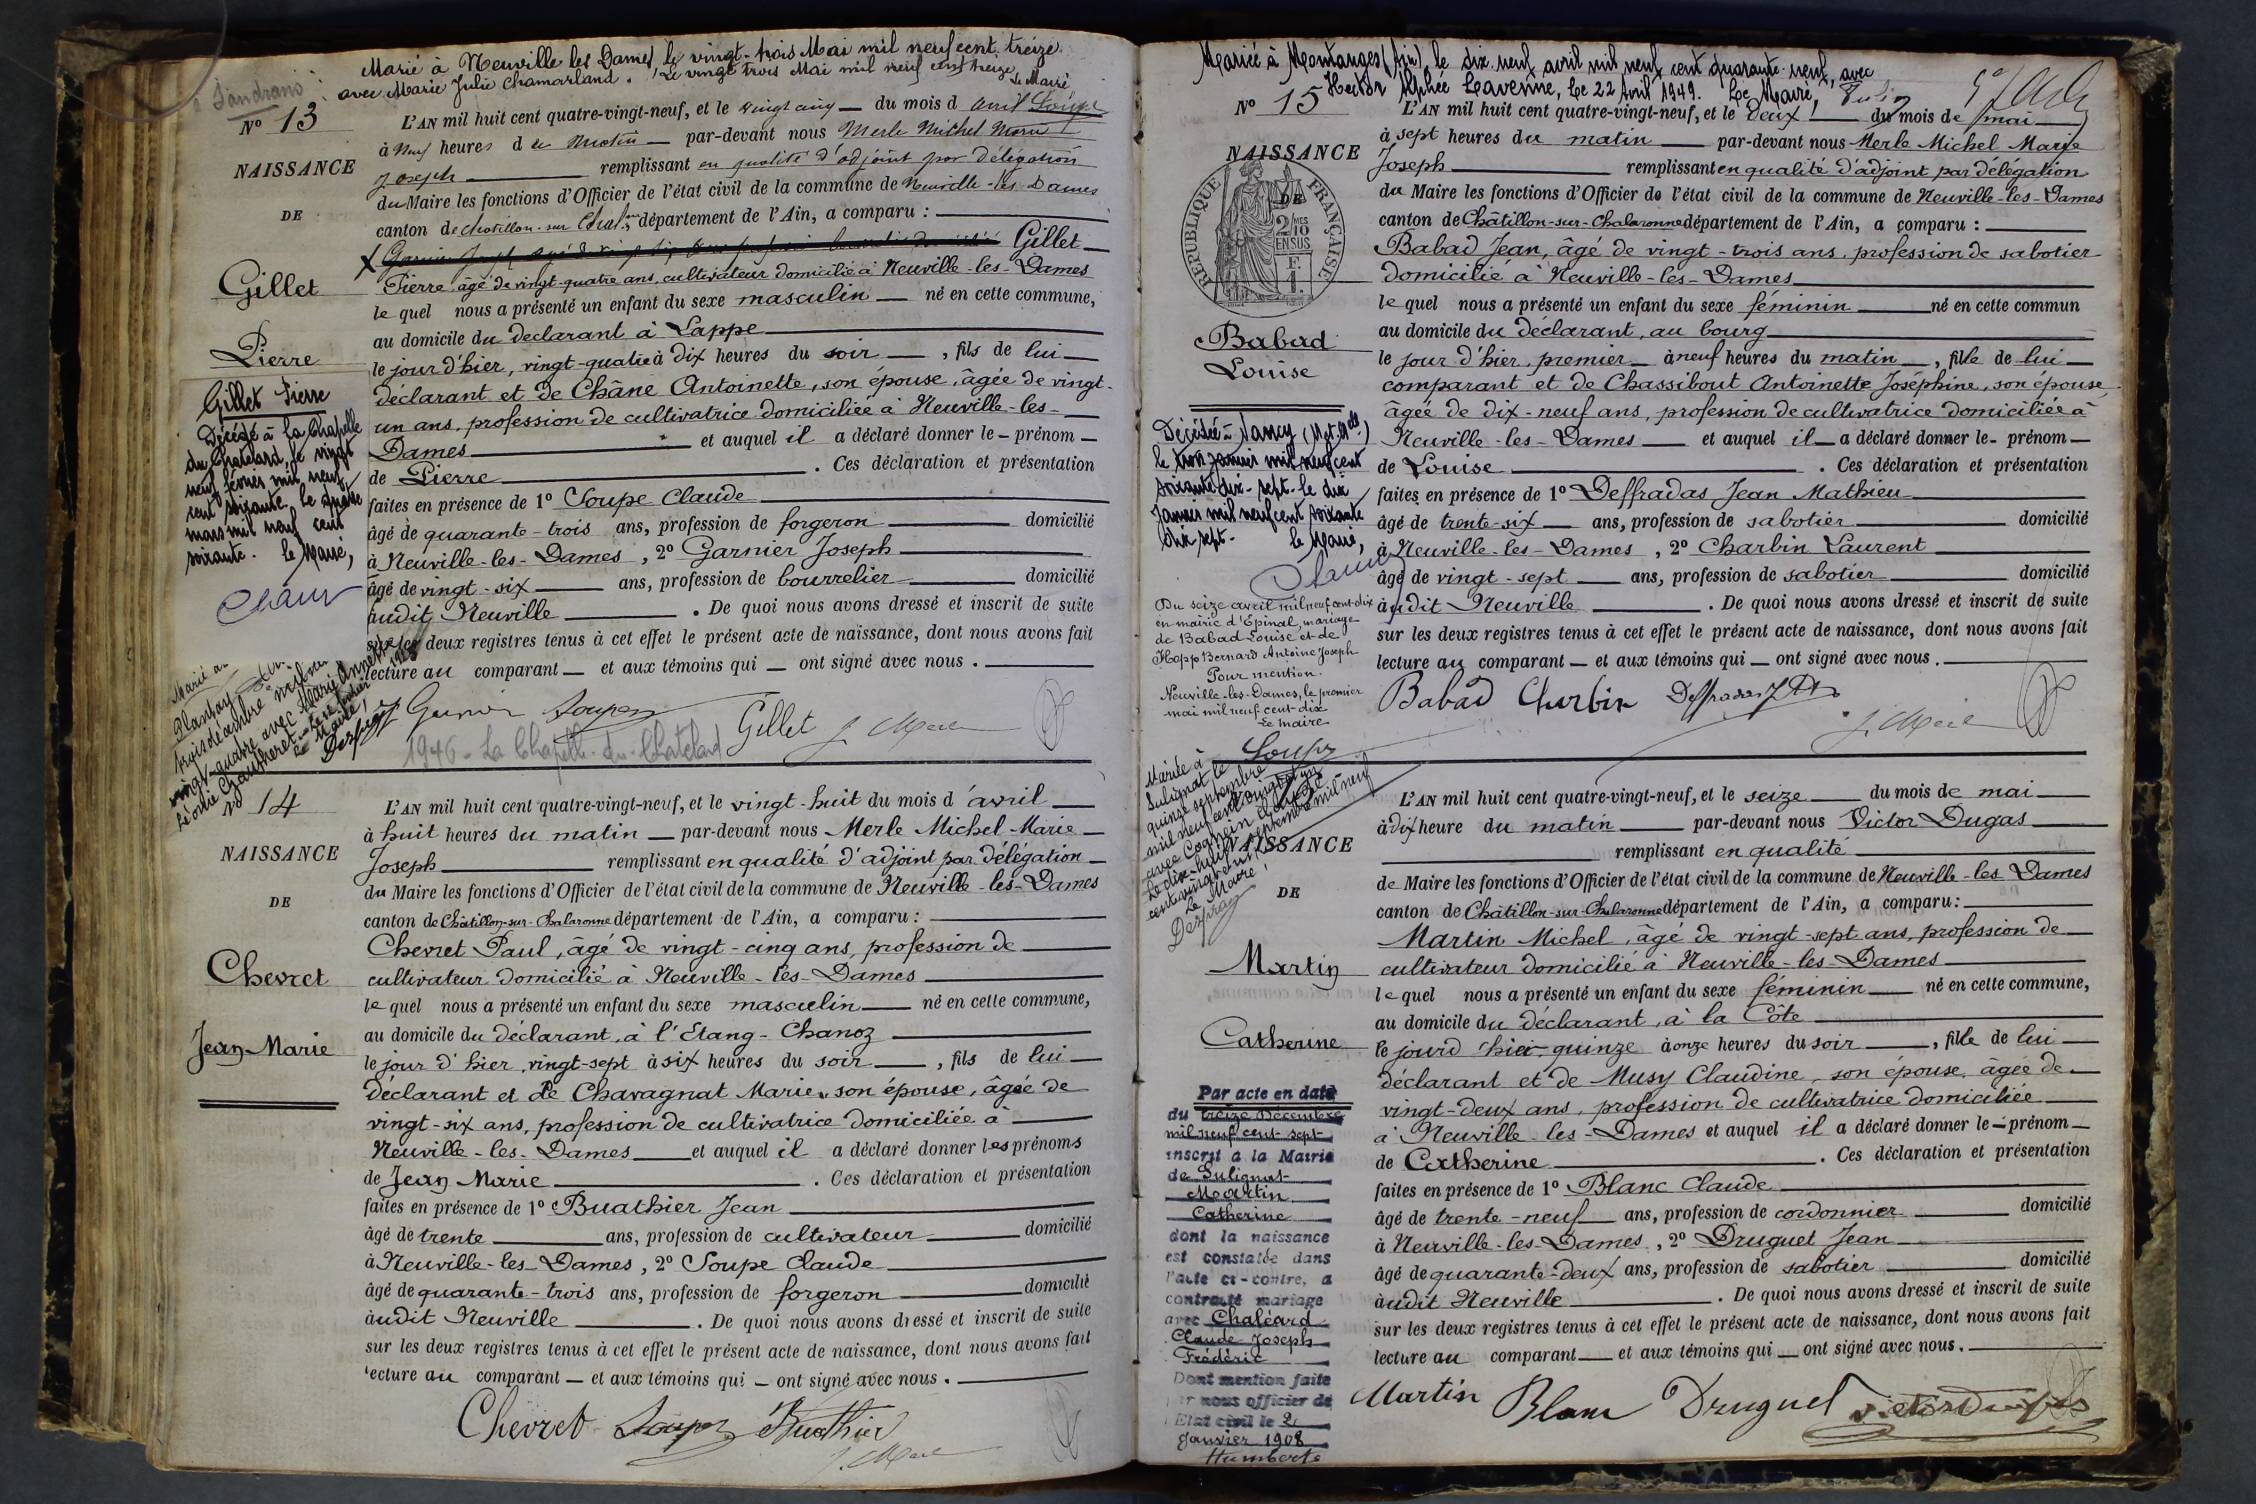 Marié à Neuville les Dames, le vingt-trois Mai mil neuf cent treize
avec Marie Julie Chamarland. Le vingt trois Mai mil neuf cent treize, Le Maire,
Nº 13
NAISSANCE
DE
Gillet
Pierre
L'AN mil huit cent quatre-vingt-neuf, et le vingt cinq du mois d'avril Soupe
à Neuf heures du Matin par-devant nous Merle Michel Marie
Joseph remplissant en qualité d'adjoint par délégation
du Maire les fonctions d'Officier de l'état civil de la commune de Neuville-les-Dames
canton de Chatillon-sur-Chal.ne, département de l'Ain, a comparu :
Gillet
Pierre âgé de vingt-quatre ans, cultivateur domicilié à Neuville-les-Dames
lequel nous a présenté un enfant du sexe masculin né en cette commune,
au domicile du déclarant à Lappe
le jour d'hier, vingt-quatre à dix heures du soir, fils de lui
déclarant et de Châne Antoinette, son épouse, âgée de vingt-
un ans, profession de cultivatrice domiciliée à Neuville-les-
Dames et auquel il a déclaré donner le prénom
de Pierre. Ces déclaration et présentation
faites en présence de 1º Soupe Claude
âgé de quarante-trois ans, profession de forgeron domicilié
à Neuville-les-Dames, 2º Garnier Joseph
âgé de vingt-six ans, profession de bourrelier domicilié
audit Neuville. De quoi nous avons dressé et inscrit de suite
sur les deux registres tenus à cet effet le présent acte de naissance, dont nous avons fait
lecture au comparant et aux témoins qui ont signé avec nous.
Garnier Soupe Gillet J. Merle
1946 - La Chapelle-du-Chatelard
Gillet Pierre
Décédé à la Chapelle
du Chatelard, le vingt
neuf février mil neuf
cent soixante. Le quatre
mars mil neuf cent
soixante. Le Maire,
Marié
Plantay
trois décembre mil neuf
vingt-quatre avec Marie Annette
Léonie Chautheret
Le Maire,
Nº 14
NAISSANCE
DE
Chevret
Jean-Marie
L'AN mil huit cent quatre-vingt-neuf, et le vingt-huit du mois d'avril
à huit heures du matin par-devant nous Merle Michel-Marie
Joseph remplissant en qualité d'adjoint par délégation
du Maire les fonctions d'Officier de l'état civil de la commune de Neuville-les-Dames
canton de Châtillon-sur-Chalaronne département de l'Ain, a comparu :
Chevret Paul, âgé de vingt-cinq ans, profession de
cultivateur domicilié à Neuville-les-Dames
lequel nous a présenté un enfant du sexe masculin né en cette commune,
au domicile du déclarant, à l'Etang-Chanoz
le jour d'hier, vingt-sept à six heures du soir, fils de lui
déclarant et de Chavagnat Marie, son épouse, âgée de
vingt-six ans, profession de cultivatrice domiciliée à
Neuville-les-Dames et auquel il a déclaré donner les prénoms
de Jean Marie. Ces déclaration et présentation
faites en présence de 1º Buathier Jean
âgé de trente ans, profession de cultivateur domicilié
à Neuville-les-Dames, 2º Soupe Claude
âgé de quarante-trois ans, profession de forgeron domicilié
audit Neuville. De quoi nous avons dressé et inscrit de suite
sur les deux registres tenus à cet effet le présent acte de naissance, dont nous avons fait
lecture au comparant et aux témoins qui ont signé avec nous.
Chevret Soupe Buathier
J. Merle
Mariée à Montanges (Ain) le dix neuf avril mil neuf cent quarante neuf, avec
Hector Alphée Lavenne, Le 22 Avril 1949. Le Maire,
Nº 15
NAISSANCE
DE
RÉPUBLIQUE FRANÇAISE
Babad
Louise
L'AN mil huit cent quatre-vingt-neuf, et le deux du mois de mai
à sept heures du matin par-devant nous Merle Michel Marie
Joseph remplissant en qualité d'adjoint par délégation
du Maire les fonctions d'Officier de l'état civil de la commune de Neuville-les-Dames
canton de Châtillon-sur-Chalaronne département de l'Ain, a comparu :
Babad Jean, âgé de vingt-trois ans, profession de sabotier
domicilié à Neuville-les-Dames
lequel nous a présenté un enfant du sexe féminin né en cette commun
au domicile du déclarant, au bourg
le jour d'hier, premier à neuf heures du matin, fille de lui
comparant et de Chassibout Antoinette Joséphine, son épouse,
âgée de dix-neuf ans, profession de cultivatrice domiciliée à
Neuville-les-Dames et auquel il a déclaré donner le prénom
de Louise. Ces déclaration et présentation
faites en présence de 1º Deffradas Jean Mathieu
âgé de trente-six ans, profession de sabotier domicilié
à Neuville-les-Dames, 2º Charbin Laurent
âgé de vingt-sept ans, profession de sabotier domicilié
audit Neuville. De quoi nous avons dressé et inscrit de suite
sur les deux registres tenus à cet effet le présent acte de naissance, dont nous avons fait
lecture au comparant et aux témoins qui ont signé avec nous.
Babad Charbin Deffradas
J. Merle
Décédée à Nancy (Mrt. Mlle)
le trois janvier mil neuf cent
soixante dix-sept. le dix
Janvier mil neuf cent soixante
dix sept. le Maire,
Du seize avril mil neuf cent-dix
en mairie d'Epinal, mariage
de Babad Louise et de
Hopp Bernard Antoine Joseph
Pour mention
Neuville-les-Dames, le premier
mai mil neuf cent-dix
Le maire
Soupe
Mariée à
Sulignat le
quinze septembre
mil neuf cent vingt et un
avec Cognein Claude
Le dix-huit septembre mil-neuf
cent vingt et un
Le Maire,
NAISSANCE
DE
Martin
Catherine
L'AN mil huit cent quatre-vingt-neuf, et le seize du mois de mai
à dix heure du matin par-devant nous Victor Dugas
remplissant en qualité
de Maire les fonctions d'Officier de l'état civil de la commune de Neuville-les-Dames
canton de Châtillon-sur-Chalaronne département de l'Ain, a comparu :
Martin Michel, âgé de vingt-sept ans, profession de
cultivateur domicilié à Neuville-les-Dames
lequel nous a présenté un enfant du sexe féminin né en cette commune,
au domicile du déclarant, à la Côte
le jour d'hier, quinze à onze heures du soir, fille de lui
déclarant et de Musy Claudine, son épouse, âgée de
vingt-deux ans, profession de cultivatrice domiciliée
à Neuville-les-Dames et auquel il a déclaré donner le prénom
de Catherine. Ces déclaration et présentation
faites en présence de 1º Blanc Claude
âgé de trente-neuf ans, profession de cordonnier domicilié
à Neuville-les-Dames, 2º Druguet Jean
âgé de quarante-deux ans, profession de sabotier domicilié
audit Neuville. De quoi nous avons dressé et inscrit de suite
sur les deux registres tenus à cet effet le présent acte de naissance, dont nous avons fait
lecture au comparant et aux témoins qui ont signé avec nous.
Martin Blanc Druguet Victor Dugas
Par acte en date
du treize Décembre
mil neuf cent sept
inscrit à la Mairie
de Sulignat
Martin
Catherine
dont la naissance
est constatée dans
l'acte ci-contre, a
contracté mariage
avec Chaléard
Claude Joseph
Frédéric
Dont mention faite
par nous officier de
l'Etat civil le 2
Janvier 1908
Humbert